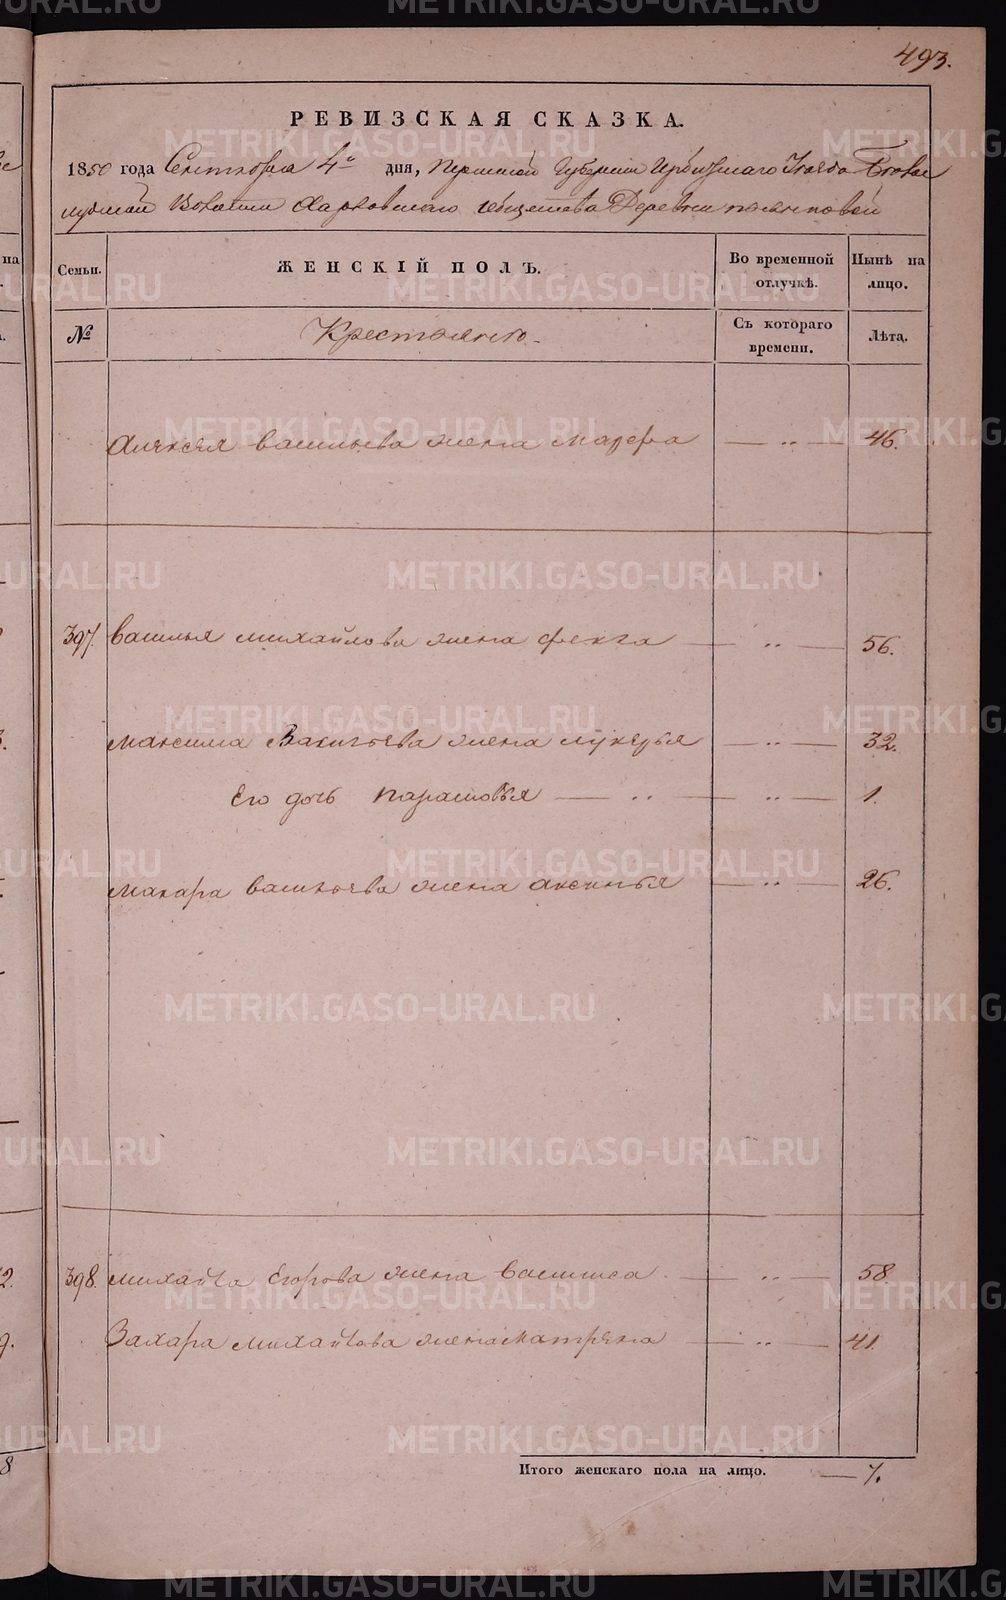 493.
РЕВИЗСКАЯ СКАЗКА.
1850 года Сентября 4го дня, Пермской Губернии Ирбитскаго Уезда
Волости Харловскаго общества Деревни
Семьи. ЖЕНСКІЙ ПОЛЪ. Во временной отлучкѣ. Нынѣ на лицо.
№ Крестьяне Съ котораго времени. Лѣта.
Алексея Васильева жена Марфа — „ — 46.
397. Василья Михайлова жена Фекла — „ — 56.
Максима Васильева жена Лукерья — „ — 32.
Его дочь Парасковья — „ — „ — 1.
Макара Васильева жена Аксинья — „ — 26.
398. Михайла Егорова жена Василиса — „ — 58.
Захара Михайлова жена Матрена — „ — 41.
Итого женскаго пола на лицо. — 7.
METRIKI.GASO-URAL.RU